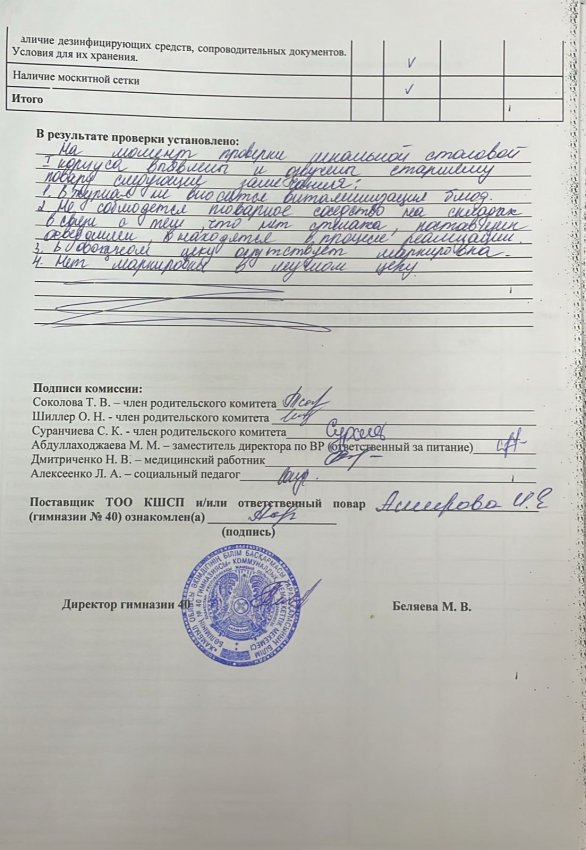 аличие дезинфицирующих средств, сопроводительных документов.
Условия для их хранения.
Наличие москитной сетки
Итого
В результате проверки установлено:
На момент проверки школьной столовой
I корпуса выявлены и озвучены старшему
повару следующие замечания:
1. В журнал не вносится витаминизация блюд.
2. Не соблюдается товарное соседство на складах
в связи с тем, что нет
находятся в процессе реализации.
3. В овощном цеху отсутствует маркировка.
4. Нет маркировки в мучном цеху.
Подписи комиссии:
Соколова Т. В. – член родительского комитета
Шиллер О. Н. - член родительского комитета
Суранчиева С. К. - член родительского комитета
Абдуллаходжаева М. М. – заместитель директора по ВР (ответственный за питание)
Дмитриченко Н. В. – медицинский работник
Алексеенко Л. А. – социальный педагог
Поставщик ТОО КШСП и/или ответственный повар Амирова И. Е
(гимназии № 40) ознакомлен(а)
(подпись)
Директор гимназии 40 Беляева М. В.